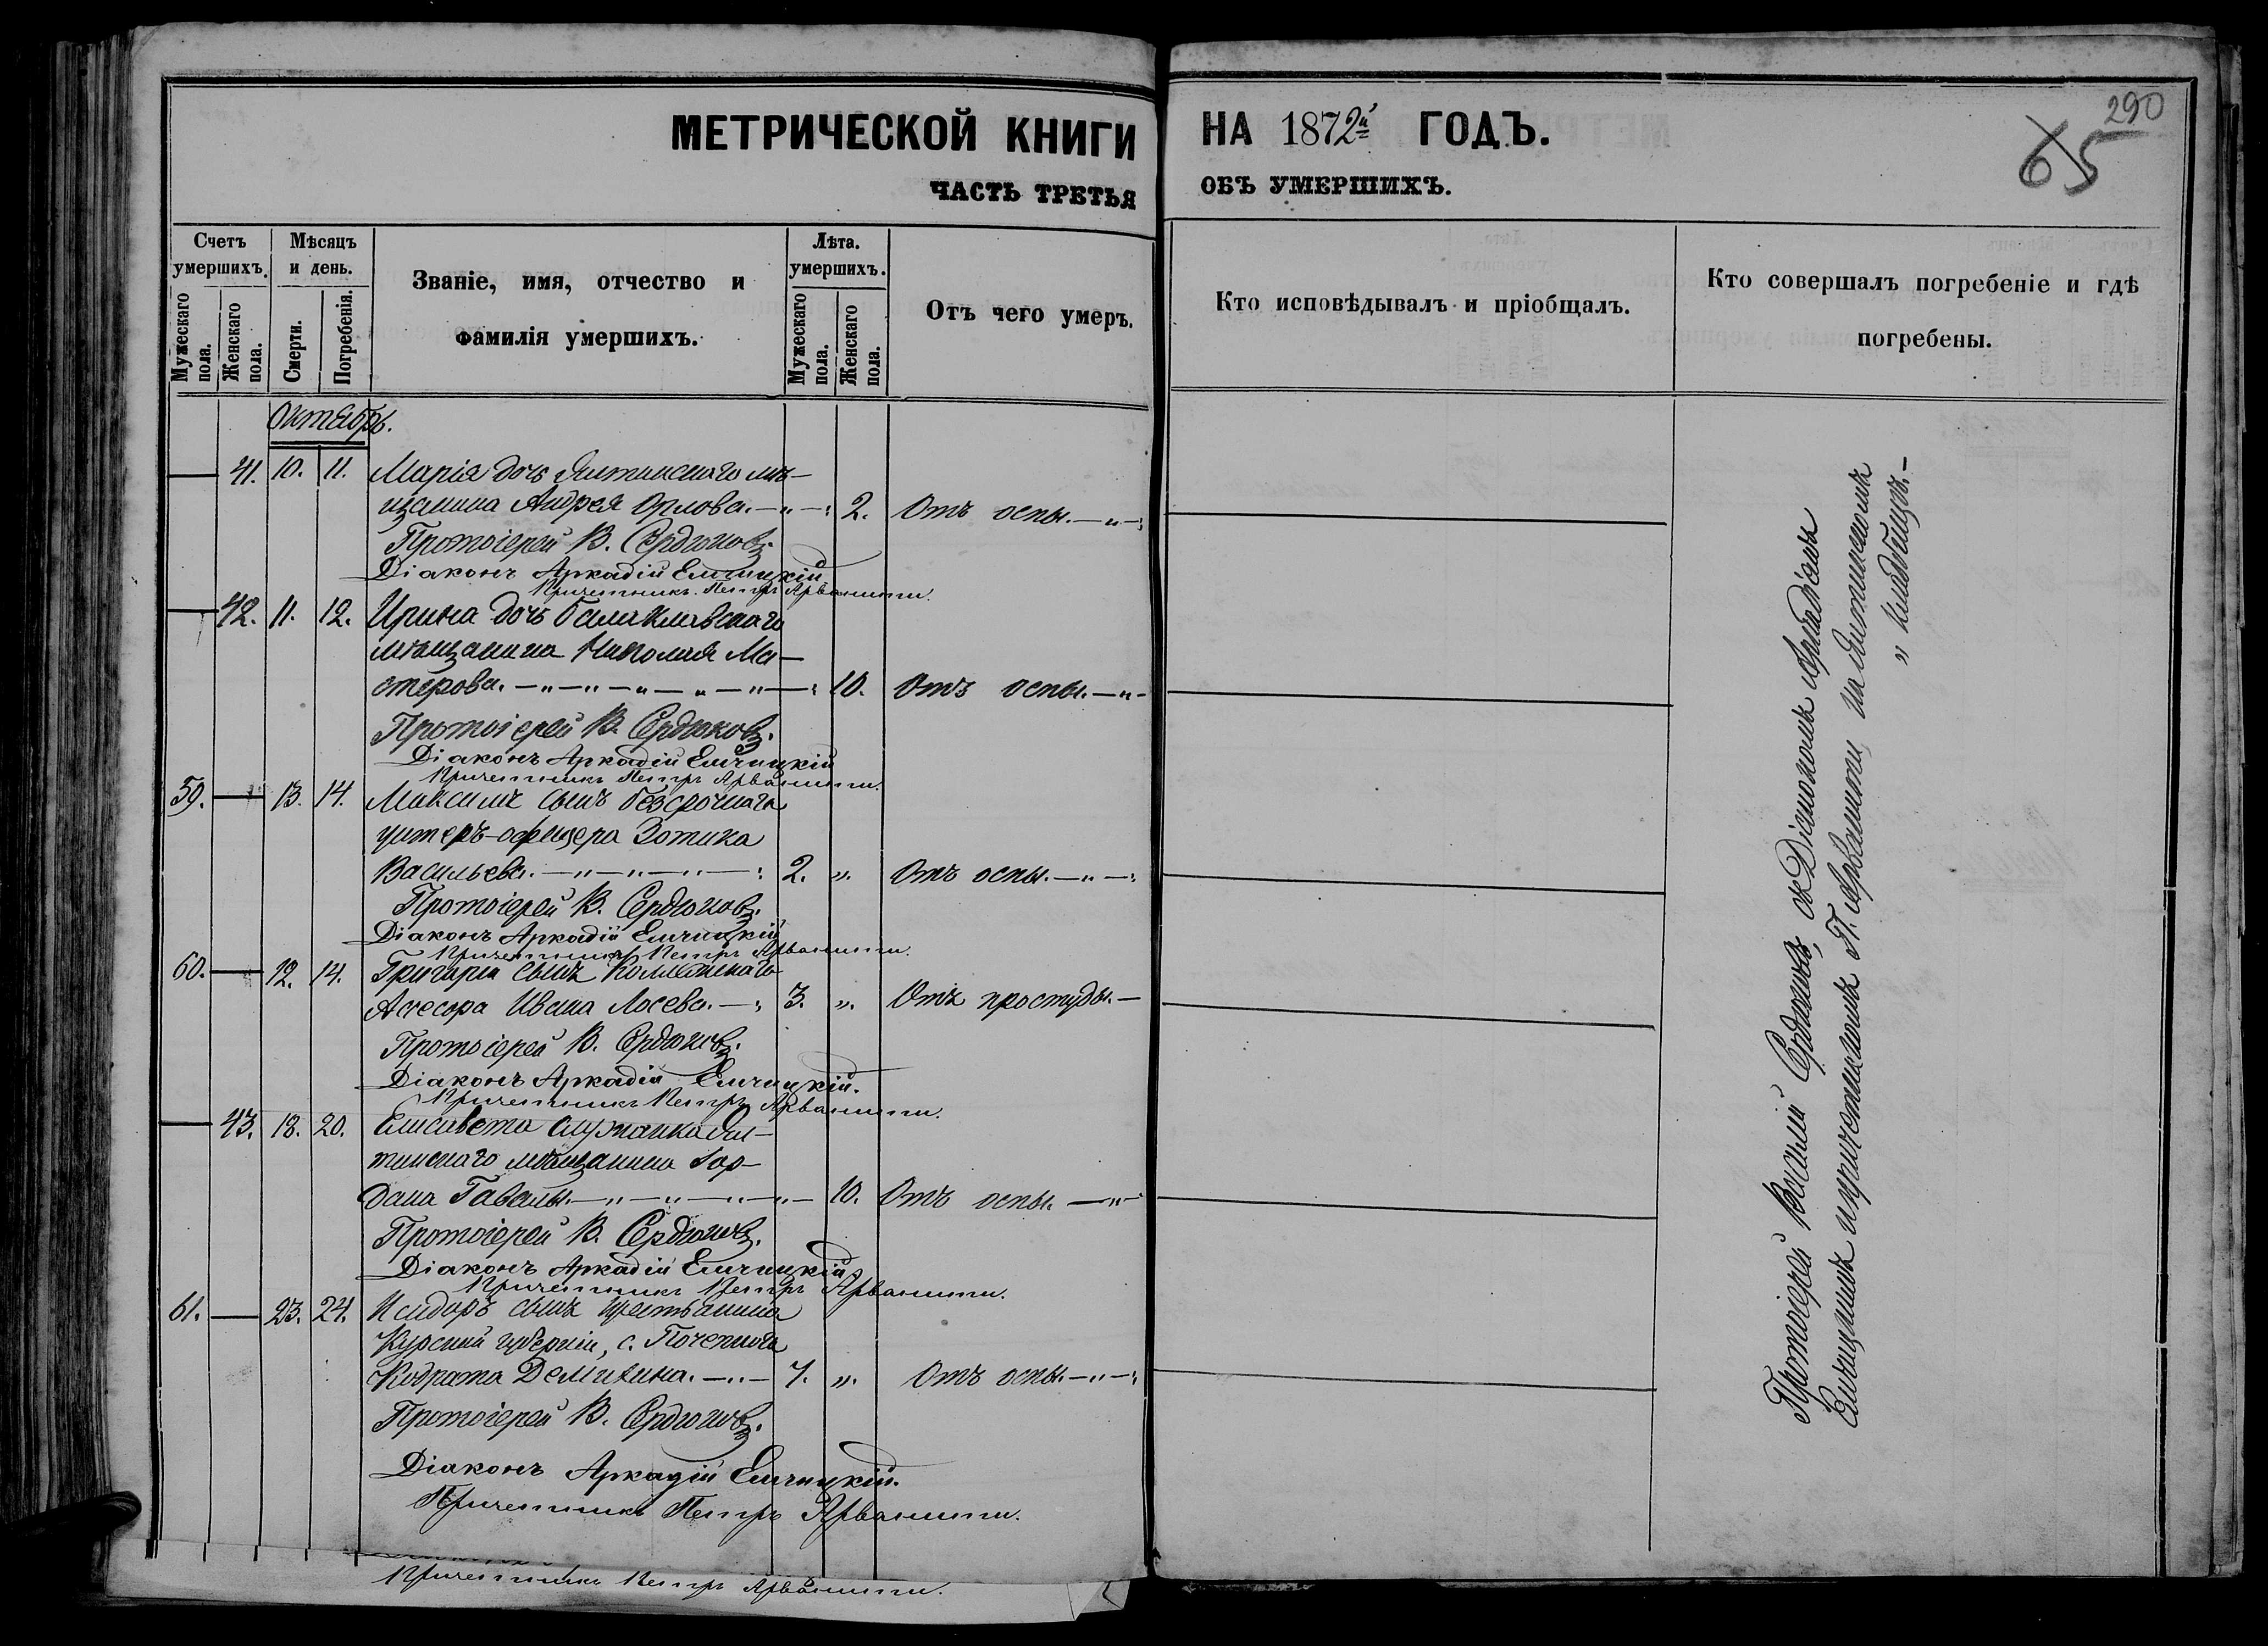 МЕТРИЧЕСКОЙ КНИГИ НА 1872й ГОДЪ.
290
65
ЧАСТЬ ТРЕТЬЯ ОБЪ УМЕРШИХЪ.
Счетъ умершихъ.
Мужескаго пола.
Женскаго пола.
Мѣсяцъ и день.
Смерти.
Погребенія.
Званіе, имя, отчество и
фамилія умершихъ.
Лѣта. умершихъ.
Мужескаго пола.
Женскаго пола.
Отъ чего умеръ.
Кто исповѣдывалъ и пріобщалъ.
Кто совершалъ погребеніе и гдѣ
погребены.
Октябрь.
— 41. 10. 11. Марія дочь Ялтинскаго мѣ-
щанина Андрея Орлова. — " — 2. Отъ оспы. — " —
Протоіерей В. Сердюковъ.
Діаконъ Аркадій Емчицкій
Причетникъ Петръ Арванити.
— 42. 11. 12. Ирина дочь балаклавскаго
мѣщанина Николая Ма-
стерова. — " — " — " — " — " — 10. Отъ оспы. — " —
Протоіерей В. Сердюковъ.
Діаконъ Аркадій Емчицкій
Причетникъ Петръ Арванити.
59. — 13. 14. Максимъ сынъ безсрочнаго
унтеръ-офицера Зотика
Васильева. — " — " — " — 2. ". Отъ оспы. — " —
Протоіерей В. Сердюковъ.
Діаконъ Аркадій Емчицкій
Причетникъ Петръ Арванити.
60. — 12. 14. Григорій сынъ Коллежскаго
Асесора Ивана Лосева. — 3. ". Отъ простуды. —
Протоіерей В. Сердюковъ.
Діаконъ Аркадій Емчицкій.
Причетникъ Петръ Арванити.
— 43. 18. 20. Елисавета служанка Ял-
тинскаго мѣщанина Іор-
дана Гавалы. — " — " — " — " — 10. Отъ оспы. — " —
Протоіерей В. Сердюковъ.
Діаконъ Аркадій Емчицкій
Причетникъ Петръ Арванити.
61. — 23. 24. Исидоръ сынъ крестьянина
Курской губерніи, с.
Кодрата Демихина. — " — 7. ". Отъ оспы. — " —
Протоіерей В. Сердюковъ.
Діаконъ Аркадій Емчицкій.
Причетникъ Петръ Арванити.
Причетникъ Петръ Арванити.
Протоіерей Василій Сердюковъ, съ Діакономъ Аркадіемъ
Емчицкимъ и причетникомъ П. Арванити, на Ялтинскомъ
" кладбищѣ. —